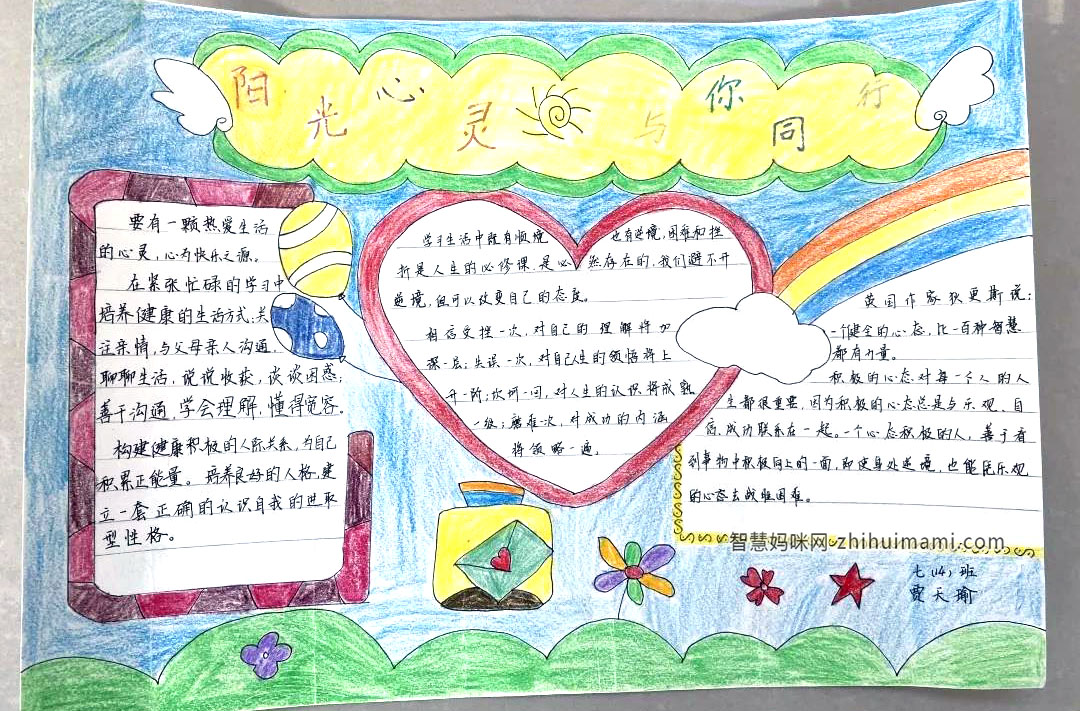 阳光心灵与你同行
要有一颗热爱生活
的心灵，心为快乐之源。
在紧张忙碌的学习中
培养健康的生活方式：关
注亲情，与父母亲人沟通，
聊聊生活，说说收获，谈谈困惑；
善于沟通，学会理解，懂得宽容。
构建健康积极的人际关系，为自己
积累正能量。培养良好的人格，建
立一套正确的认识自我的进取
型性格。
学习生活中既有顺境 也有逆境，困难和挫
折是人生的必修课，是必然存在的，我们避不开
逆境，但可以改变自己的态度。
相信受挫一次，对自己的理解将加
深一层；失误一次，对自己人生的领悟将上
升一阶；坎坷一回，对人生的认识将成熟
一级；磨难一次，对成功的内涵
将领略一遍。
英国作家狄更斯说：
一个健全的心态，比一百种智慧
都有力量。
积极的心态对每一个人的人
生都很重要，因为积极的心态总是与乐观、自
信、成功联系在一起。一个心态积极的人，善于看
到事物中积极向上的一面，即使身处逆境，也能以乐观
的心态去战胜困难。
智慧妈咪网-zhihuimami.com
七（14）班
贾天瑜